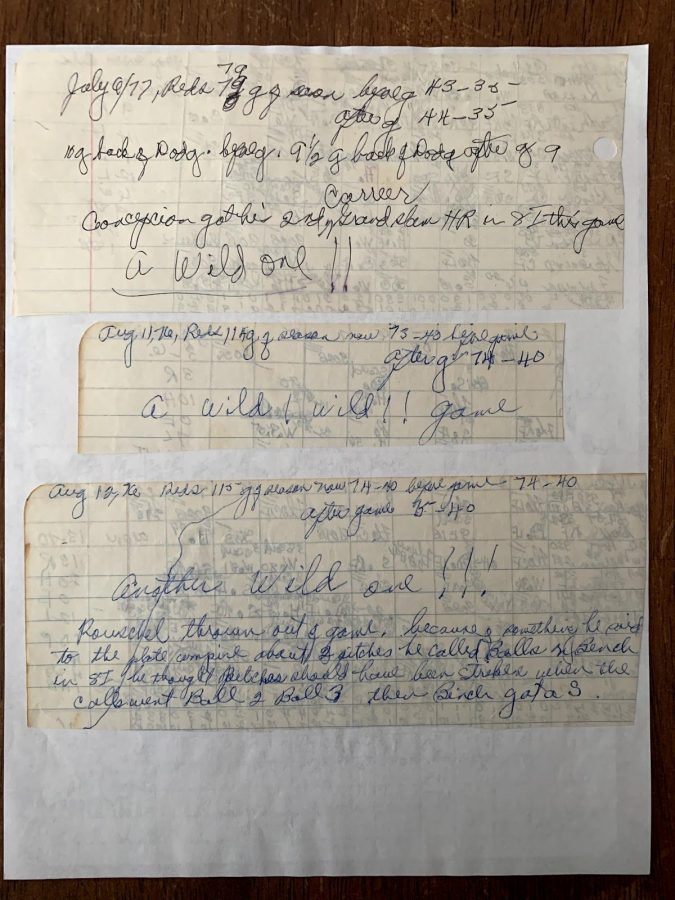 July 6/77, Reds 79 g of season before g 43-35
after g 44-35
10 g back of Dodg. before g. 9 1/2 g back of Dodg after g
Career
Concepcion got his 2nd grand slam HR in 8 I this game
A Wild one !!
Aug 11, 76, Reds, 114 g of season now 73-40 before game
after g 74-40
A wild! wild!! game
Aug 12, 76 Reds 115 g of season now 74-40 before game 74-40
after game 75-40
Another Wild one !!!
Reuschel thrown out of game, because of something he said
to the plate umpire about 2 pitches he called Balls on Bench
in 8 I he thought Pitches should have been Strikes when the
calls went Ball 2 Ball 3 then Bench got a 3.